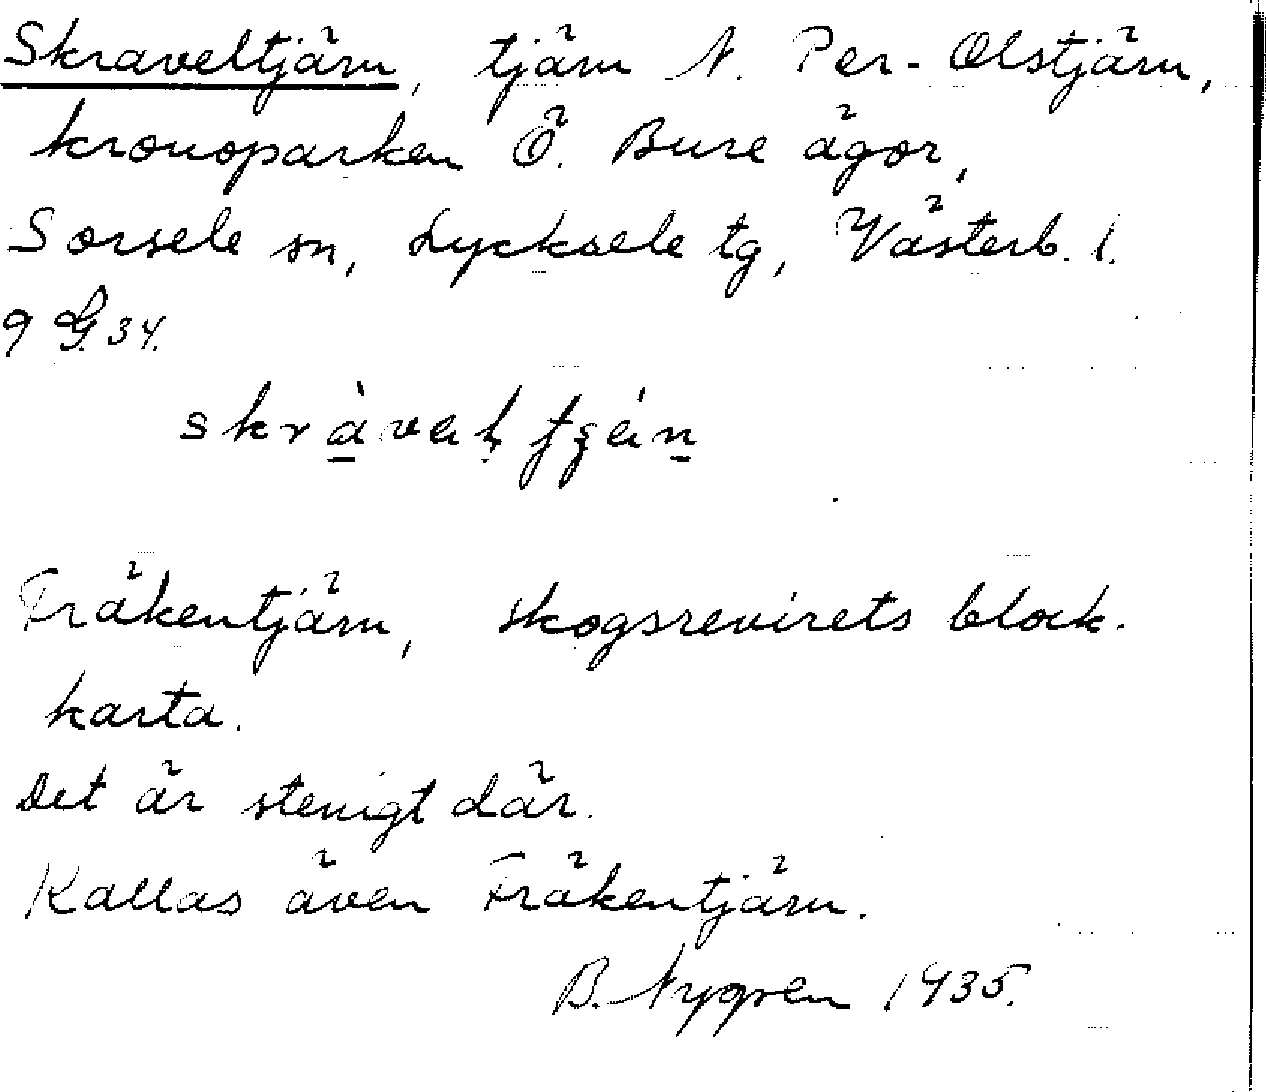 Skraveltjärn, tjärn N. Per-Olstjärn,
kronoparken Ö. Bure ägor,
Sorsele sn, Lycksele tg, Västerb. l.
9 G. 34.
Fräkentjärn, skogsrevirets block-
karta.
Det är stenigt där.
Kallas även Fräkentjärn.
B. Nygren 1935.